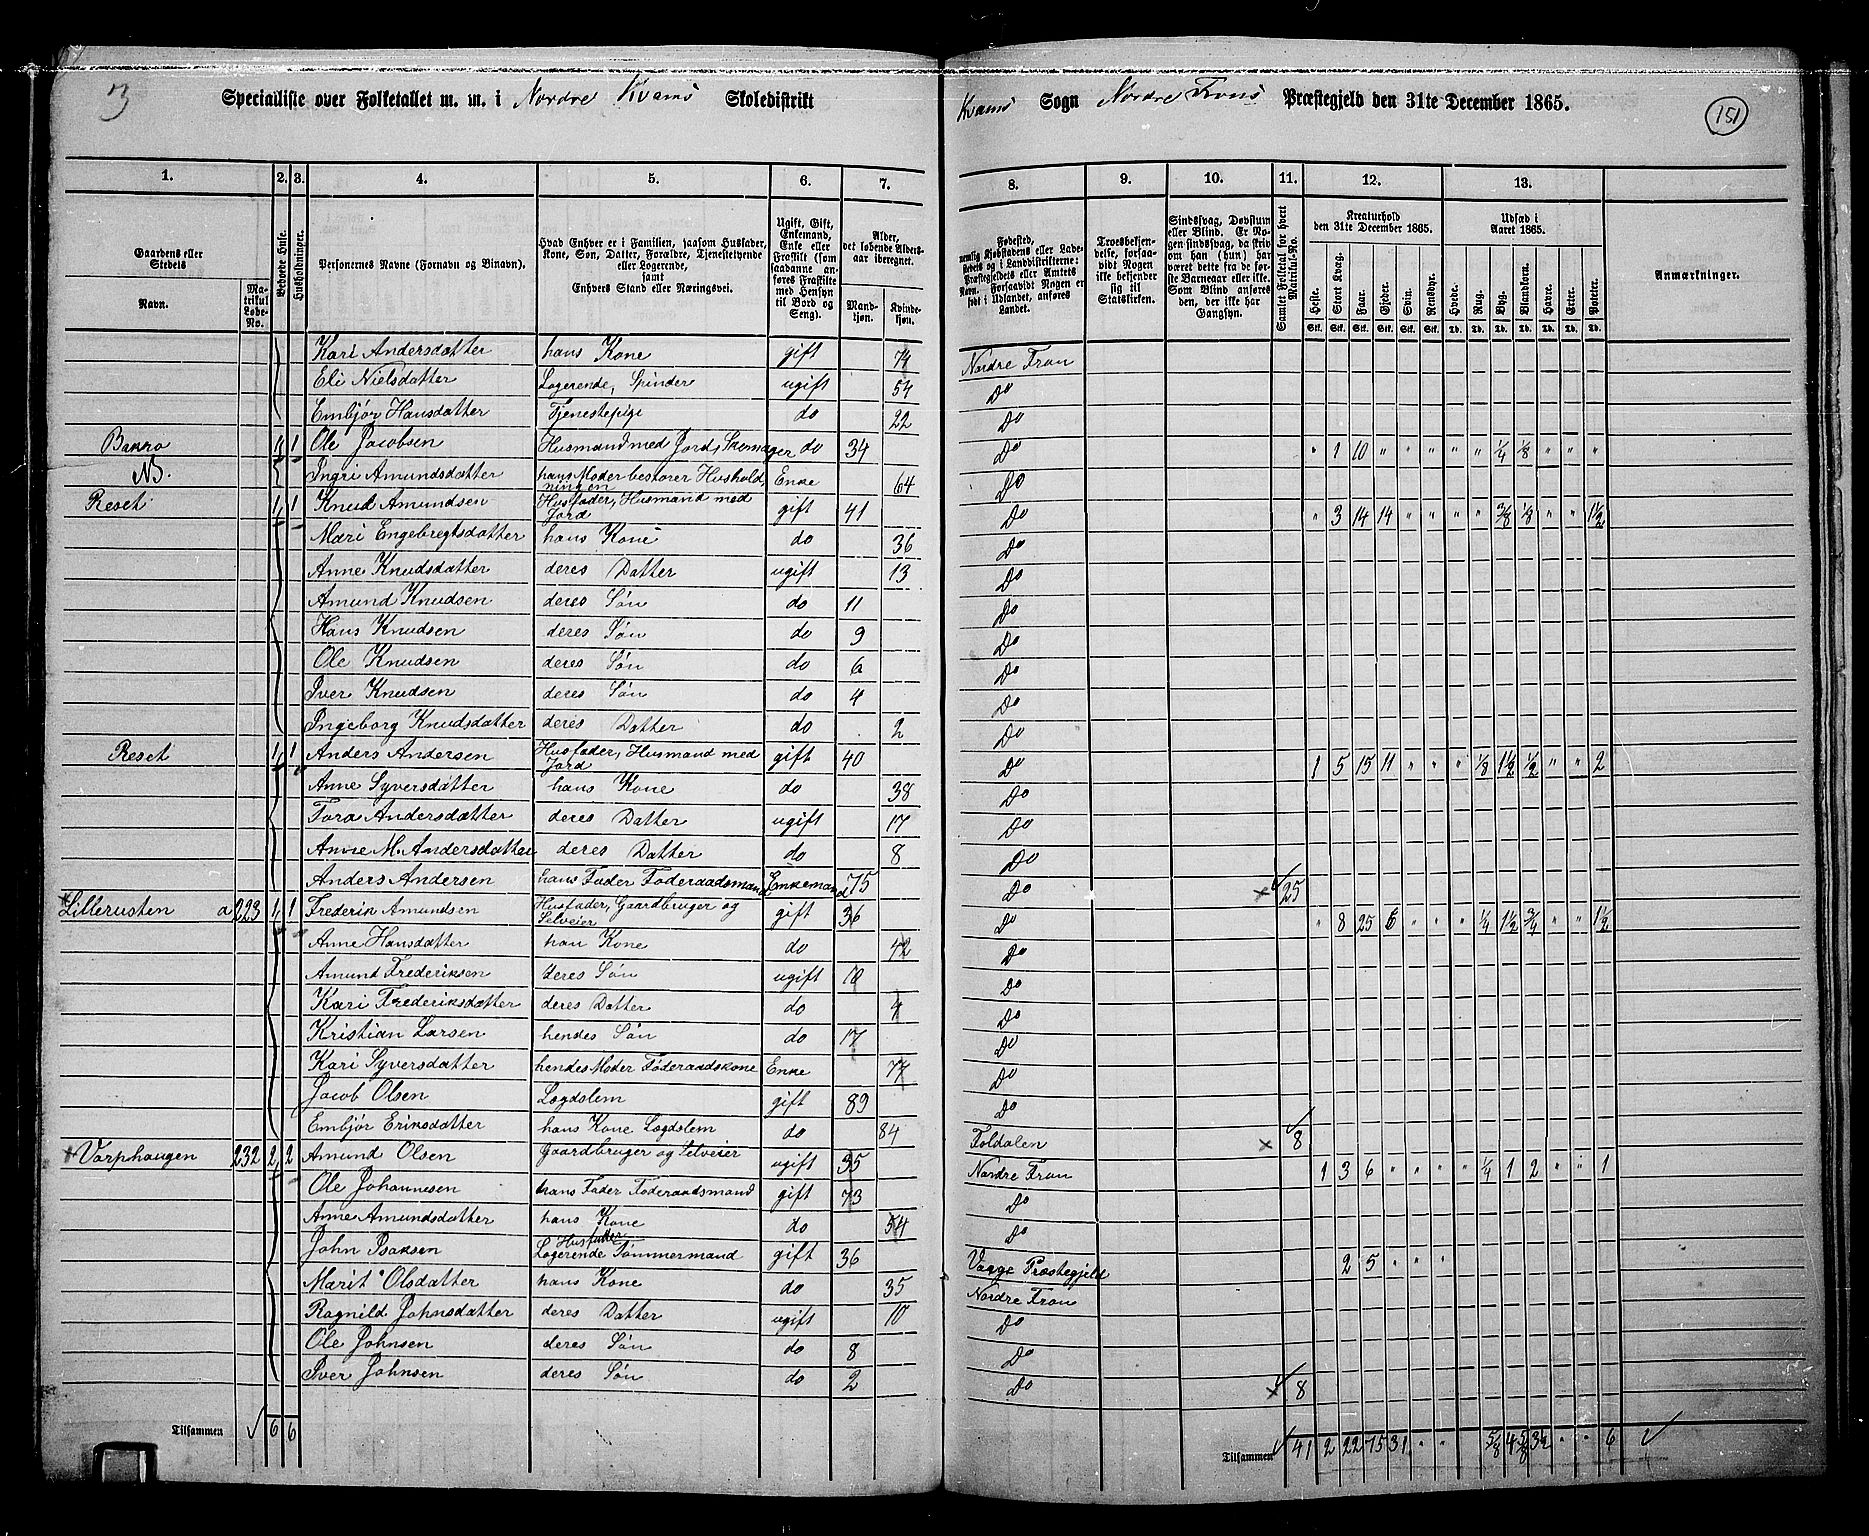 3
Specialliste over Folketallet m. m. i Nordre Kvams Skoledistrikt
Kvams Sogn Nordre Frons Præstegjeld den 31te December 1865.
151
1. 2. 3. 4. 5. 6. 7. 8. 9. 10. 11. 12. 13.
Gaardens eller Stedets
Navn.
Matrikul Løbe-No.
Beboede Huse.
Husholdninger.
Personernes Navne (Fornavn og Binavn).
Hvad Enhver er i Familien, saasom Husfader, Kone, Søn, Datter, Forældre, Tjenestetyende eller Logerende, samt Enhvers Stand eller Næringsvei.
Ugift, Gift, Enkemand, Enke eller Fraskilt (som saadanne anføres Fraskilte med Hensyn til Bord og Seng).
Alder, det løbende Alders-aar iberegnet.
Mandkjøn.
Kvindekjøn.
Fødested,
Troesbekjendelse, forsaavidt Nogen ikke bekjender sig til Statskirken.
Sindssvag, Døvstum eller Blind. Er Nogen sindssvag, da skriv om han (hun) har været dette fra de første Barneaar eller ikke. Som Blind anføres den, der ikke har Gangsyn.
Samlet Folketal for hvert Matrikul-No.
Kreaturhold den 31te December 1865.
Heste. Stort Kvæg. Faar. Gjeder. Svin. Rensdyr.
Udsæd i Aaret 1865.
Hvede. Rug. Byg. Blandkorn. Havre. Erter. Poteter.
Anmærkninger.
Kari Andersdatter hans Kone gift 74 Nordre Fron
Eli Nielsdatter Logerende, Spinder ugift 54 Do
Embjør Hansdatter Tjenestepige do 22 Do
Bakro 1 1 Ole Jacobsen Husmand med Jord, Skomager do 34 Do " 1 10 " " " " " 1/4 1/8 " " "
NB. Ingri Amundsdatter hans Moder bestorer Husholdningen Enke 64 Do
Reset 1 1 Knud Amundsen Husfader, Husmand med Jord gift 41 Do " 3 14 14 " " " " 3/8 1/8 " " 1 1/2
Mari Engebregtsdatter hans Kone do 36 Do
Anne Knudsdatter deres Datter ugift 13 Do
Amund Knudsen deres Søn do 11 Do
Hans Knudsen deres Søn do 9 Do
Ole Knudsen deres Søn do 6 Do
Iver Knudsen deres Søn do 4 Do
Ingeborg Knudsdatter deres Datter do 2 Do
Reset 1 1 Anders Andersen Husfader, Husmand med Jord gift 40 Do 1 5 15 11 " " " 1/8 1 1/2 1/2 " " 2
Anne Syversdatter hans Kone do 38 Do
Tora Andersdatter deres Datter ugift 17 Do
Anne M. Andersdatter deres Datter do 8 Do
Anders Andersen hans Fader Føderaadsmand Enkemand 75 Do 25
Lillerusten a 223 1 1 Frederik Amundsen Husfader, Gaardbruger og Selveier gift 36 Do " 8 25 6 " " " 1/4 1 1/2 3/4 " " 1 1/2
Anne Hansdatter han Kone do 42 Do
Amund Frederiksen deres Søn ugift 10 Do
Kari Frederiksdatter deres Datter do 4 Do
Kristian Larsen hendes Søn do 17 Do
Kari Syversdatter hendes Moder Føderaadskone Enke 77 Do
Jacob Olsen Lægdslem gift 89 Do
Embjør Eriksdatter hans Kone Lægdslem do 84 Foldalen 8
Varphaugen 232 2 2 Amund Olsen Gaardbruger og Selveier ugift 35 Nordre Fron 1 3 6 " " " " 1/4 1 2 " " 1
Ole Johannesen hans Fader Føderaadsmand gift 73 Do
Anne Amundsdatter hans Kone do 54 Do
John Isaksen Husfader Logerende Tømmermand gift 36 Vaage Præstegjeld 2 5 " "
Marit Olsdatter hans Kone do 35 Nordre Fron
Ragnild Johnsdatter deres Datter ugift 10 Do
Ole Johnsen deres Søn do 8 Do
Iver Johnsen deres Søn do 2 Do 8
Tilsammen 6 6
Tilsammen 41 2 22 75 31 " " 5/8 4 5/8 3 1/2 " " 6